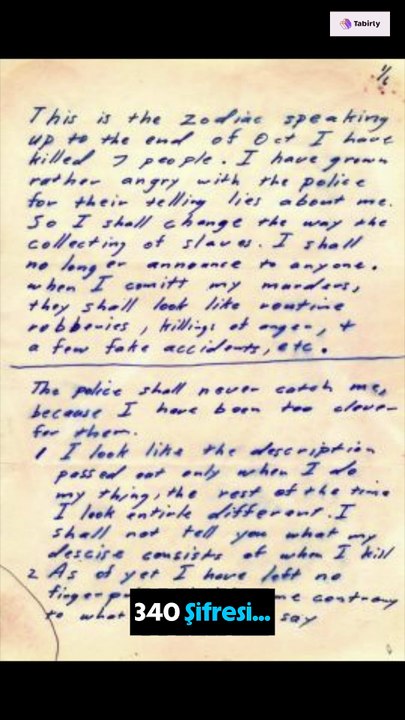 Tabirly
1/6
This is the zodiac speaking
up to the end of Oct I have
killed 7 people. I have grown
rather angry with the police
for their telling lies about me.
So I shall change the way the
collecting of slaves. I shall
no longer announce to anyone.
when I comitt my murders,
they shall look like routine
robberies, killings of anger, +
a few fake accidents, etc.
The police shall never catch me,
because I have been too clever
for them.
1 I look like the description
passed out only when I do
my thing, the rest of the time
I look entirle different. I
shall not tell you what my
descise consists of when I kill
2 As of yet I have left no
me contrary
to what say
340 Şifresi...